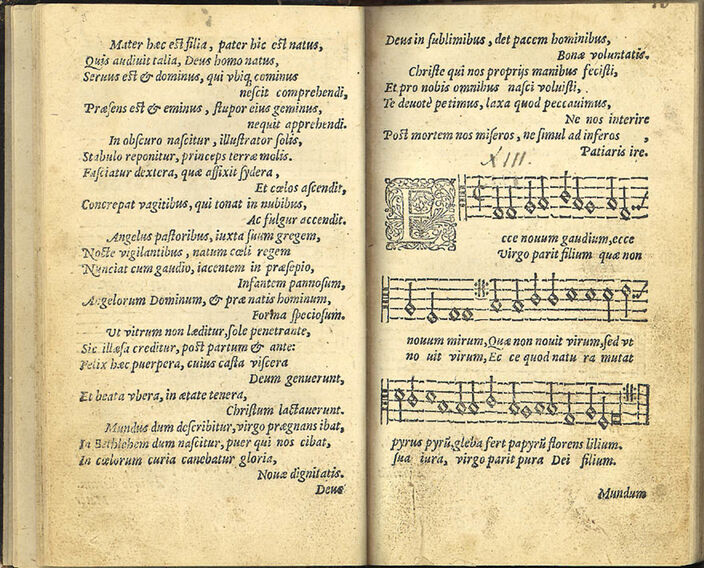 Mater hæc est filia, pater hic est natus,
Quis audiuit talia, Deus homo natus,
Seruus est & dominus, qui vbiq; cominus
nescit comprehendi,
Præsens est & eminus, stupor eius geminus,
nequit apprehendi.
In obscuro nascitur, illustrator solis,
Stabulo reponitur, princeps terræ molis.
Fasciatur dextera, quæ affixit sydera,
Et cœlos ascendit,
Concrepat vagitibus, qui tonat in nubibus,
Ac fulgur accendit.
Angelus pastoribus, iuxta suum gregem,
Nocte vigilantibus, natum cœli regem
Nunciat cum gaudio, iacentem in præsepio,
Infantem pannosum,
Angelorum Dominum, & præ natis hominum,
Forma speciosum.
Ut vitrum non læditur, sole penetrante,
Sic illæsa creditur, post partum & ante:
Felix hæc puerpera, cuius casta viscera
Deum genuerunt,
Et beata vbera, in ætate tenera,
Christum lactauerunt.
Mundus dum describitur, virgo prægnans ibat,
In Bethlehem dum nascitur, puer qui nos cibat,
In cœlorum curia canebatur gloria,
Nouæ dignitatis.
Deus
Deus in sublimibus, det pacem hominibus,
Bonæ voluntatis.
Christe qui nos proprijs manibus fecisti,
Et pro nobis omnibus nasci voluisti,
Te deuotè petimus, laxa quod peccauimus,
Ne nos interire
Post mortem nos miseros, ne simul ad inferos ,
Patiaris ire.
XIII.
E
cce nouum gaudium, ecce
Virgo parit filium quæ non
nouum mirum, Quæ non nouit virum, sed vt
no uit virum, Ec ce quod natu ra mutat
pyrus pyrũ, gleba fert papyrũ florens lilium.
sua iura, virgo parit pura Dei filium.
Mundum